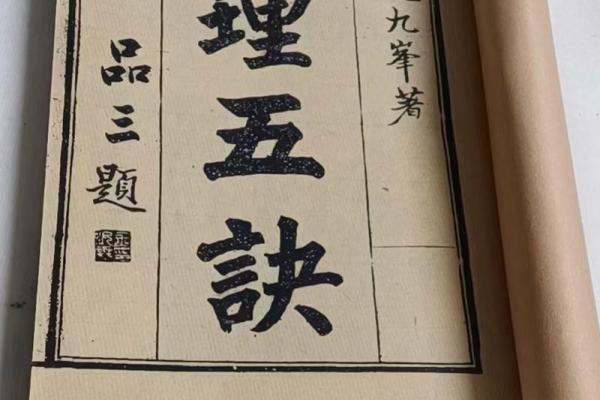 九峯著
理五訣
品三題